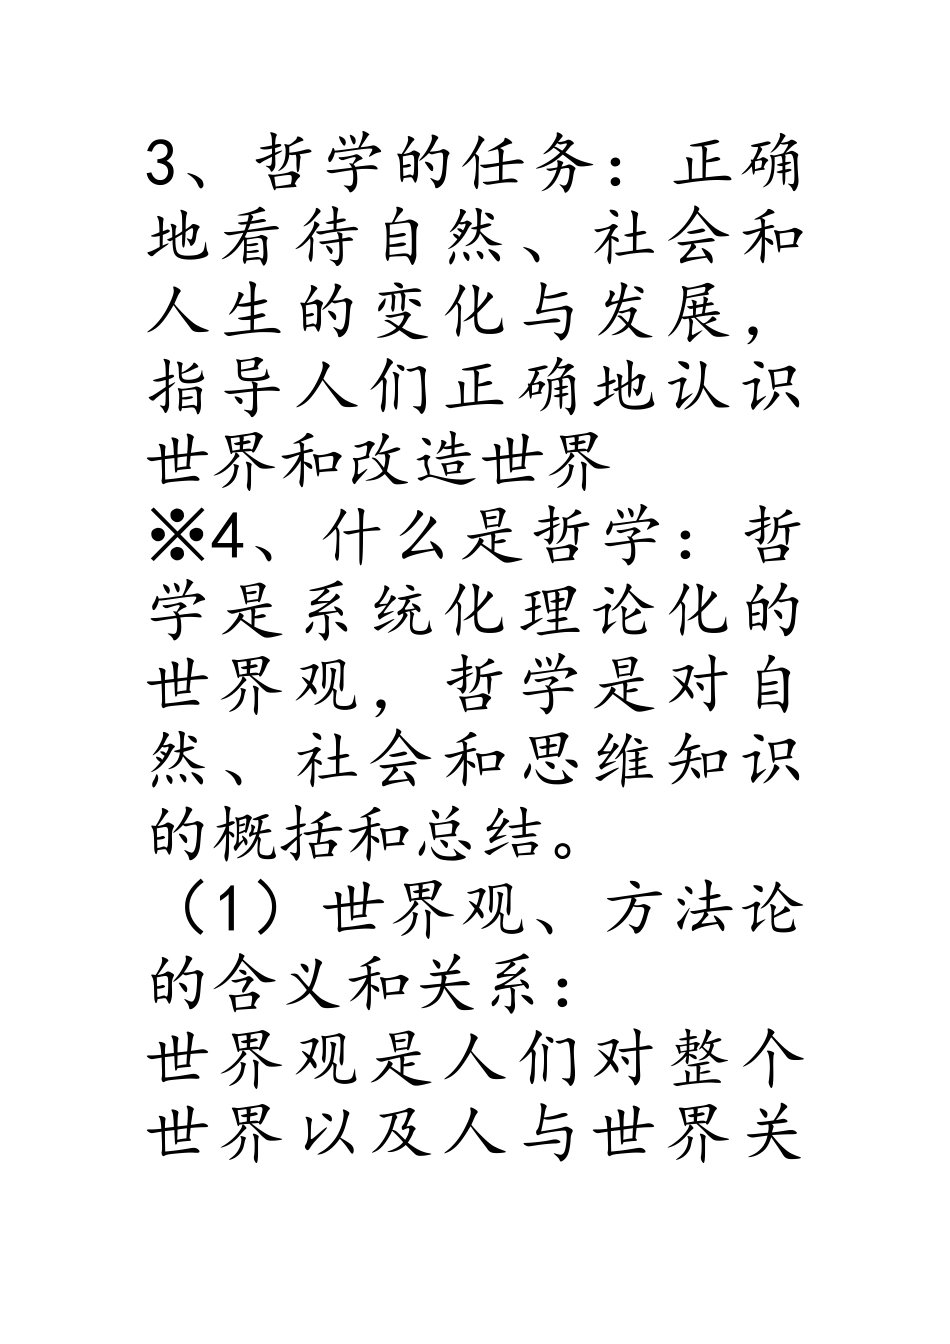 3、哲学的任务：正确
地看待自然、社会和
人生的变化与发展，
指导人们正确地认识
世界和改造世界
※4、什么是哲学：哲
学是系统化理论化的
世界观，哲学是对自
然、社会和思维知识
的概括和总结。
（1）世界观、方法论
的含义和关系：
世界观是人们对整个
世界以及人与世界关